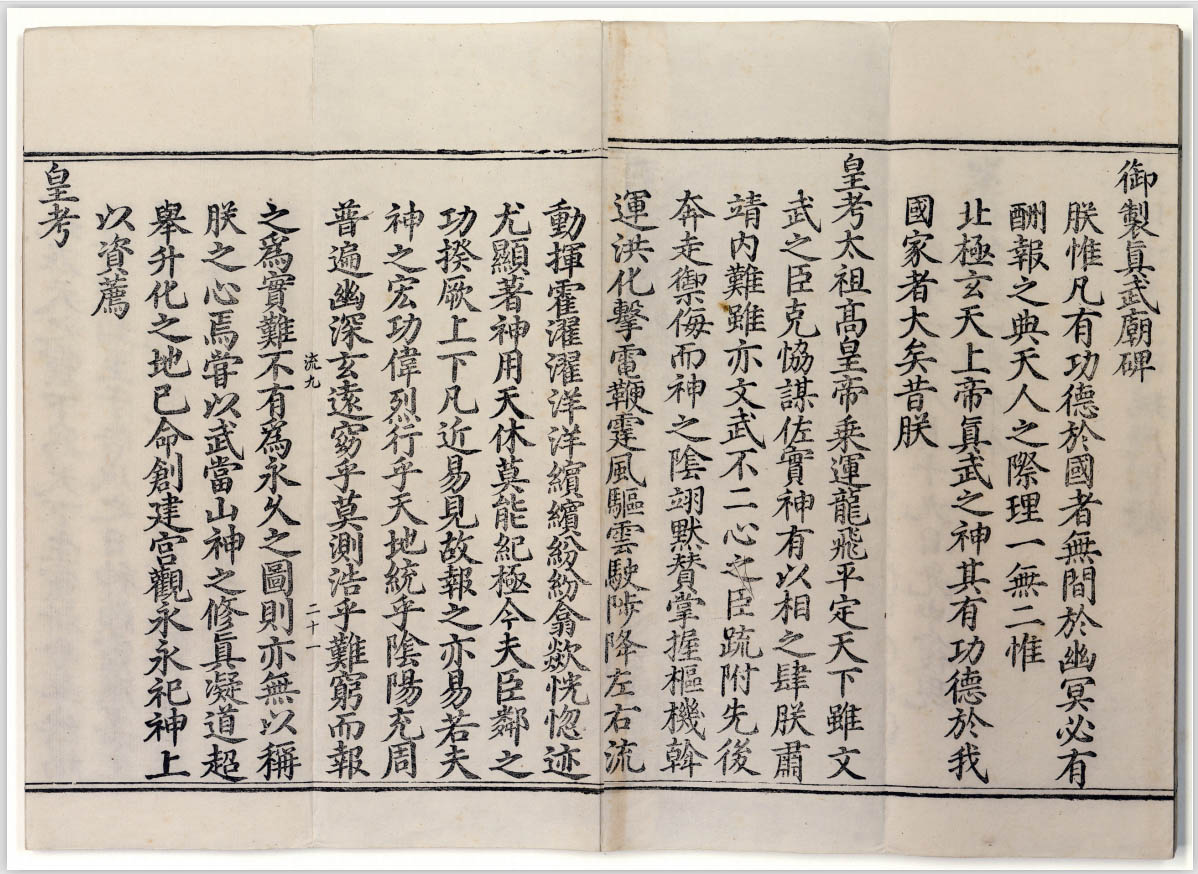 御製眞武廟碑
朕惟凡有功德於國者無間於幽冥必有
酬報之典天人之際理一無二惟
北極玄天上帝眞武之神其有功德於我
國家者大矣昔朕
皇考太祖高皇帝乘運龍飛平定天下雖文
武之臣克恊謀佐實神有以相之肆朕肅
靖内難雖亦文武不二心之臣疏附先後
奔走禦侮而神之隂翊默賛掌握樞機斡
運洪化擊電鞭霆風驅雲駛陟降左右流
動揮霍濯濯洋洋繽繽紛紛翕欻恍惚迹
尤顯著神用天休莫能紀極今夫臣鄰之
功揆厥上下凡近易見故報之亦易若夫
神之宏功偉烈行乎天地統乎隂陽充周
普遍幽深玄遠窈乎莫測浩乎難窮而報
流九
二十一
之爲實難不有爲永久之圖則亦無以稱
朕之心焉甞以武當山神之修眞凝道超
舉升化之地已命創建宫觀永永祀神上
以資薦
皇考